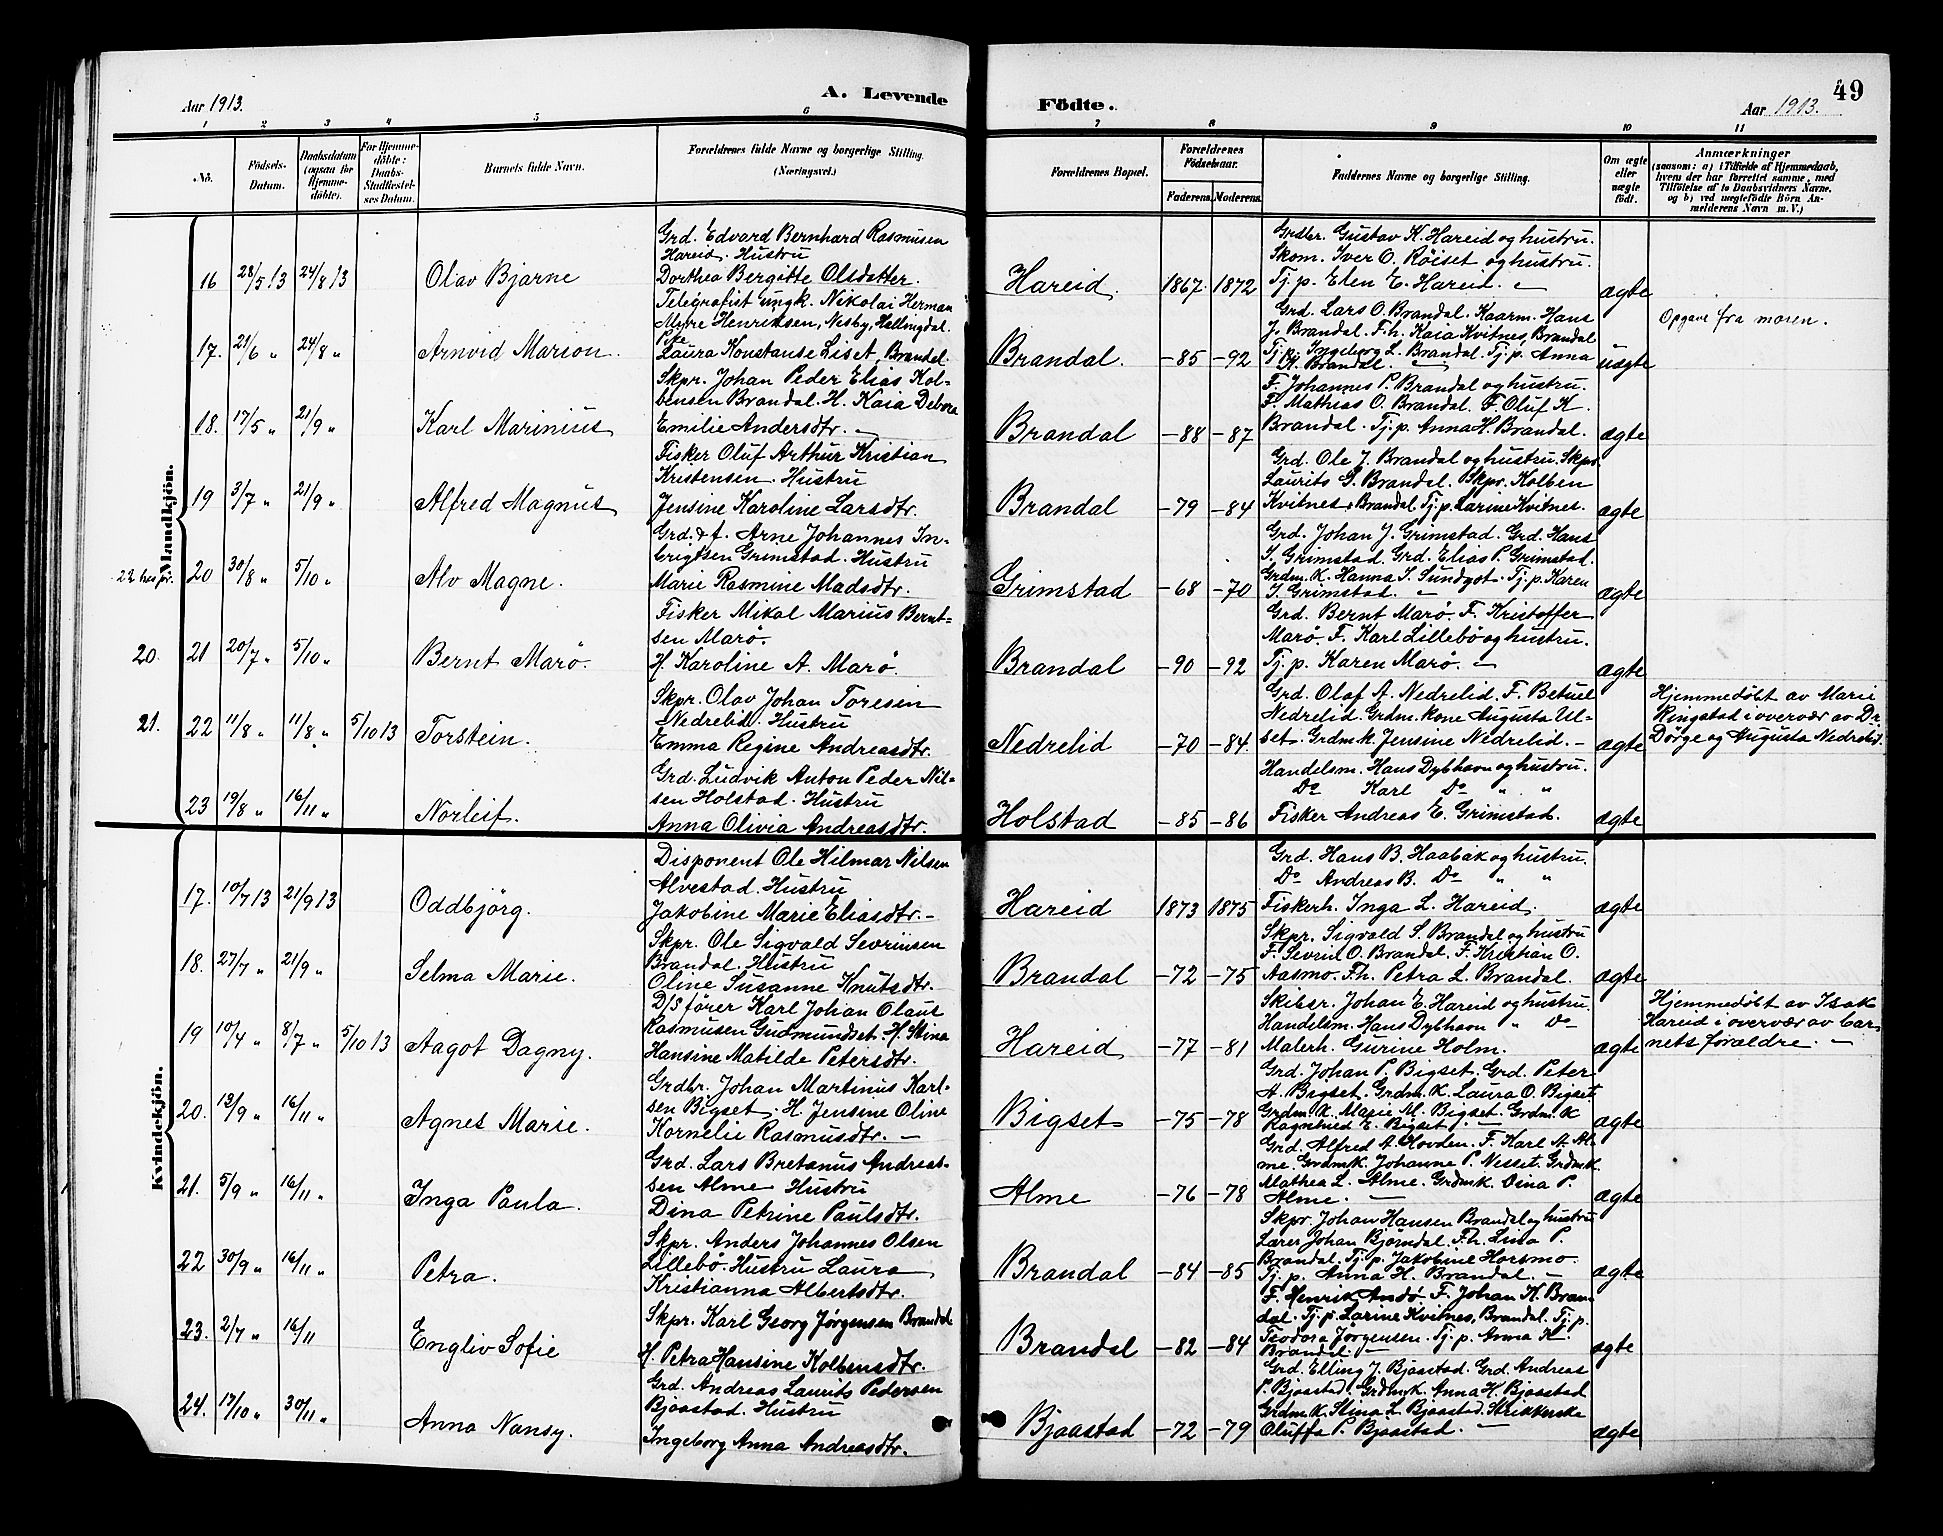 49
Aar 1913.
A. Levende
Födte.
Aar 1913.
1 2 3 4 5 6 7 8 9 10 11
No.
Födsels-Datum.
Daabsdatum (ogsaa for Hjemme-döbte).
For Hjemme-döbte: Daabs-Stadfæstel-ses Datum.
Barnets fulde Navn.
Forældrenes fulde Navne og borgerlige Stilling. (Næringsvei.)
Forældrenes Bopæl.
Forældrenes Födselsaar.
Faderens. Moderens.
Faddernes Navne og borgerlige Stilling.
Om ægte eller uægte födt.
Anmærkninger
(saasom: a) i Tilfælde af Hjemmedaab, hvem der har forrettet samme, med Tilföielse af to Daabsvidners Navne, og b) ved uægtefödte Börn An-melderens Navn m. V.)
Mandkjön.
Grd. Edvard Bernhard Rasmusen
Hareid. Hustru
16 28/5 13 24/8 13 Olav Bjarne Dorthea Bergitte Olsdatter.
Hareid. 1867. 1872
Grdbr. Gustav K. Hareid og hustru.
Skom. Iver O. Röiset og hustru.
Tj. p. Elen E. Hareid. ægte
Telegrafist ungk. Nikolai Herman
Myre Henriksen, Nesby, Hallingdal.
Pike
17. 21/6 " 24/8 " Arnvid Marion. Laura Konstanse Liset, Brandal.
Brandal. -85 -92
Grd. Lars O. Brandal. Kaarm. Hans
J. Brandal. F.h. Kaia Kvitnes, Brandal
Tj. p. Ingeborg L. Brandal. Tj. p. Anna
H. Brandal. uægte
Opgave fra moren.
Skpr. Johan Peder Elias Kol-
bensen Brandal. H. Kaia Debora
18. 17/5 " 21/9 " Karl Marinius Emilie Andersdtr.
Brandal -88 -87
F. Johannes P. Brandal og hustru.
F. Mathias O. Brandal. F. Oluf K.
Brandal. Tj. p. Anna H. Brandal. ægte
Fisker Oluf Arthur Kristian
Kristensen. Hustru
19 3/7 " 21/9 " Alfred Magnus Jensine Karoline Larsdtr.
Brandal -79 -84
Grd. Ole J. Brandal og hustru. Skpr.
Laurits G. Brandal. Skpr. Kolben
Kvitnes, Brandal. Tj. p. Larine Kvitnes. ægte
Grd. & f. Arne Johannes In-
brigtsen Grimstad. Hustru
20 30/8 " 5/10 " Alv Magne. Marie Rasmine Madsdtr.
Grimstad -68 -70
Grd. Johan J. Grimstad. Grd. Hans
I. Grimstad. Grd. Elias P. Grimstad.
Grdm. K. Hanna I. Sundgot. Tj. p. Karen
I. Grimstad. ægte
Fisker Mikal Marius Bernt-
sen Marö.
20. 21 20/7 " 5/10 " Bernt Marö. H. Karoline A. Marö.
Brandal -90 -92
Grd. Bernt Marö. F. Kristoffer
Marö. F. Karl Lillebö og hustru.
Tj. p. Karen Marö. ægte
Skpr. Olav Johan Toresen
Nedrelid. Hustru
21. 22 11/8 " 11/8 " 5/10 13 Torstein. Emma Regine Andreasdtr.
Nedrelid -70 -84.
Grd. Olaf A. Nedrelid. F. Betuel
Nedrelid. Grdm. kone Augusta Ul-
set. Grdm. k. Jensine Nedrelid. ægte
Hjemmedöbt av Marie
Ringstad i overvær av Dr
Dörge og Augusta Nedrelid.
Grd. Ludvik Anton Peder Nil-
sen Holstad. Hustru
23 19/8 " 16/11 " Norleif. Anna Olivia Andreasdtr.
Holstad -85 -86
Handelsm. Hans Dybhavn og hustru.
Do Karl Do " "
Fisker Andreas E. Grimstad. ægte
Kvindekjön.
Disponent Ole Hilmar Nilsen
Alvestad. Hustru
17. 10/7 13 21/9 13 Oddbjörg. Jakobine Marie Eliasdtr.
Hareid 1873 1875
Grd. Hans B. Haabak og hustru.
Do Andreas B. Do " "
Fiskerh. Inga L. Hareid. ægte
Skpr. Ole Sigvald Sevrinsen
Brandal. Hustru
18. 27/7 " 21/9 " Selma Marie. Oline Susanne Knutsdtr.
Brandal -72 -75
Skpr. Sigvald S. Brandal og hustru
F. Sevrin O. Brandal. F. Kristian O.
Aasmo. F.h. Petra L. Brandal. ægte
D/S förer Karl Johan Olaus
Rasmusen Gudmundset. H. Stina
19 10/4 " 8/7 " 5/10 13 Aagot Dagny. Hansine Matilde Petersdtr.
Hareid -77 -81
Skibsr. Johan E. Hareid og hustru.
Handelsm. Hans Dybhavn " Do
Malerh. Gurine Holm. ægte
Hjemmedöbt av Isak
Hareid i overvær av bar-
nets forældre.
Grdbr. Johan Martinus Karl-
sen Bigset. H. Jensine Oline
20. 13/9 " 16/11 " Agnes Marie. Kornelie Rasmusdtr.
Bigset -75 -78
Grd. Johan P. Bigset. Grd. Peter
A. Bigset. Grdm. K. Laura O. Bigset
Grdm. K. Marie M. Bigset. Grdm. K
Ragnhild E. Bigset. ægte
Grd. Lars Bretanus Andreas-
sen Alme. Hustru
21. 5/9 " 16/11 " Inga Paula. Dina Petrine Paulsdtr.
Alme -76 -78
Grd. Alfred A. Hovden. F. Karl A. Al-
me. Grdmk. Johanne P. Nesset. Grdmk.
Mathea L. Alme. Grdmk. Dina P.
Alme. ægte
Skpr. Anders Johannes Olsen
Lillebö. Hustru Laura
22 30/9 " 16/11 " Petra. Kristianna Albertsdtr.
Brandal -84 -85
Skpr. Johan Hansen Brandal og hustru
Lærer Johan Björndal. F.h. Lina P.
Brandal. Tj. p. Jakobine Horsmo.
Tj. p. Anna H. Brandal. ægte
Skpr. Karl Georg Jörgensen Brandal
23. 2/7 " 16/11 Engliv Sofie H. Petra Hansine Kolbensdtr.
Brandal -82 -84
F. Henrik Andö. F. Johan K. Bran-
dal. Tj. p. Larine Kvitnes, Brandal. Tj. p.
Teodora Jörgensen. Tj. p. Anna H.
Brandal. ægte
Grd. Andreas Laurits Pedersen
Bjaastad. Hustru
24. 13/10 " 30/11 " Anna Nansy. Ingeborg Anna Andreasdtr.
Bjaastad -72 -79
Grd. Elling J. Bjaastad. Grd. Andreas
P. Bjaastad. Grdmk. Anna H. Bjaastad
Grdm. K. Stina L. Bjaastad. Strikkerske
Oluffa P. Bjaastad. ægte